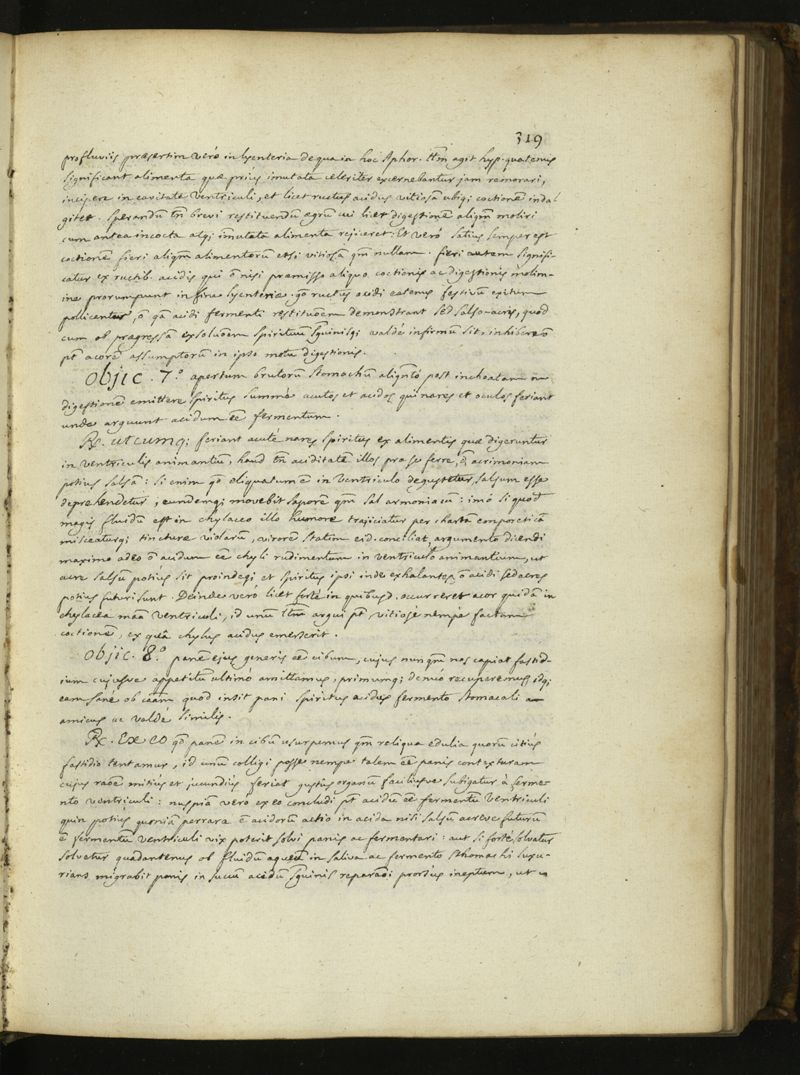 319
profluviis præsertim verò in lyenteria de qua in hoc Aphor. Hm̄ agit hyp. quatenus
significant alimenta quæ priùs imutata celeriter excernebantur jam remorari,
incipere in cavitate ventriculi, et licet ructus acidus vitiosā ubiqȝ coctionē indi
gitet. sperandū tn̄ brevi restituendū ægrū cui licet digestionē aliqm̄ moliri
cum antea incocta atqȝ im̄utata alimenta rejiceret. Et verò satius semper est
coctionē fieri aliqm̄ alimentorū etsi vitiosā qm̄ nullam. fieri autem signifi-
catur ex ructib. acidis qui ō nisi præmisso aliquo coctionis ac digestionis molim-
ine prorumpunt in fine lyenteriæ. gō ructus acidi eatenus festivū exitum
pollicentur, ō qā acidi fermenti restituōem demonstrant sed salso-acris, quod
cum ob prægressā exsoluōem spirituum sguinisqȝ valdè infirmū sit, inhibere ō
pt̄ acorē assumptorū in ipso motu digestionis.
Objic. 7.º apertum brutorū stomachū aligntō post inchoatam
digestionē emittere spiritus summè acutos et acidos qui nares et oculos feriant
unde arguunt acidum eē fermentum.
℞. utcumqȝ feriant acutè nares spiritus ex alimentis quæ digeruntur
in ventriculis animantiū, haud tn̄ aciditatē illos præ se ferre, acrimoniam
potius salsā: si enim qō eliquatum ē in ventriculo degustetur, salsum esse
deprehendetur, eundemqȝ movebit saporē qm̄ sal armoniacū: imò si quod
magis fluidū est in chylaceo illo humore trajiciatur per chartā emporeticā
misceaturqȝ tincturæ violarū, virorē statim eid. conciliat, argumento dicendi
maximo adeo ō acidum eē chyli rudimentum in ventriculo animantium, ut
acre salsū potiùs sit proindeqȝ et spiritus ipsi inde exhalantes ō acidi sed acres
potius futuri sunt. Deindes verò licet fortè in quibusd. occurreret acor quidā in
chylacea maā ventriculi, id unū tm̄ argui pt̄ vitiosè nempè factam
coctionē, ex quâ chylus acidus emerserit.
Objic. 8.º panē ejus generis eē cibum, cujus nunqm̄ nos capiat fastid-
ium cujusve appetitū ultimò amittamus, primumqȝ denuò recuperemus, idqȝ
eam sanè ob cāam quod insit pani spiritus acidus fermento stomacali
amicus ac valdè similis.
℞. Ex eo qō panē in cibū usurpemus qm̄ reliqua edulia quorū citiùs
fastidio tentamur, id unū colligi posse nempe talem eē panis contexturam
cujus raōe mitiùs et jucundius feriat gustus organū faciliusve subigatur à ferme-
nto ventriculi: nuspiā verò ex eo concludi pt̄ acidū eē fermentū ventriculi
quin potiùs quoniā perrara ē acidorū actio in acida nisi salsū acreve futurū
ē fermentū ventriculi vix poterit solvi panis ac fermentari: aut si fortè solvatur
solvetur quadantenus ob fluidū aqueū in saliva ac fermento sthomachi luxu-
rians migrabit panis in sucū acidū sguinis reparādi prorsùs ineptum, ut